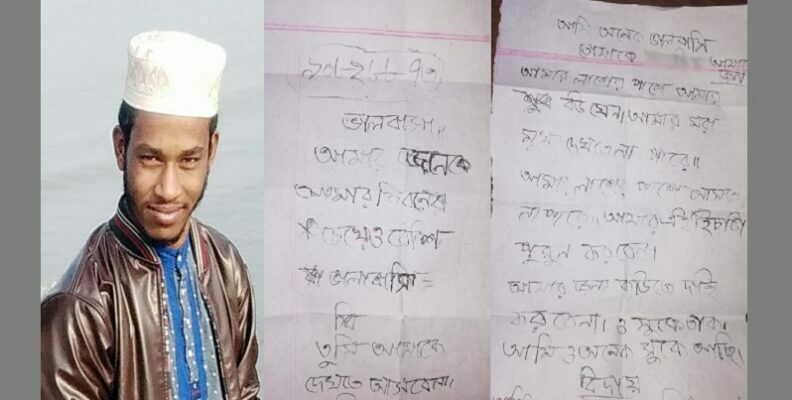 ভালবাসা॥
আমার জানকে
আমার জিবনের
চেয়েও বেশি
ভালোবাসি =
তুমি আমাকে
দেখতে আসবেনা।
আমি অনেক ভালবাসি
তোমাকে আমার
জান
আমার লাশের পাশে আমার
বউ যেন। আমার মরা
মুখ দেখতেনা পারে॥
আমার লাশের পাশে আসতে
না পারে॥ আমার
করবেন।
আমার জন্য কাউকে দাই
করবেনা। ও সুকে
আমি ও অনেক সুকে আছি।
বিদায়